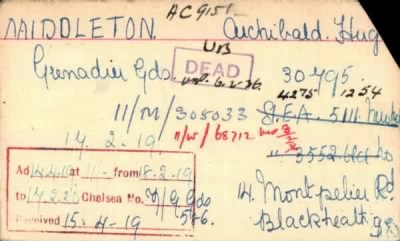 MIDDLETON. AC9151 Archibald. Hug
UB
Grenadier Gds. DEAD 30795.
6.2.36. 4275 1254
11/M/305033 S.E.A. 5111.
17.2.19 11/W/68712
3552
Ad 14.4.19 at 11/- from 18.2.19
to 17.2.20 Chelsea No. Gds
546.
Received 15-4-19 14. Montpelier Rd
Blackheath